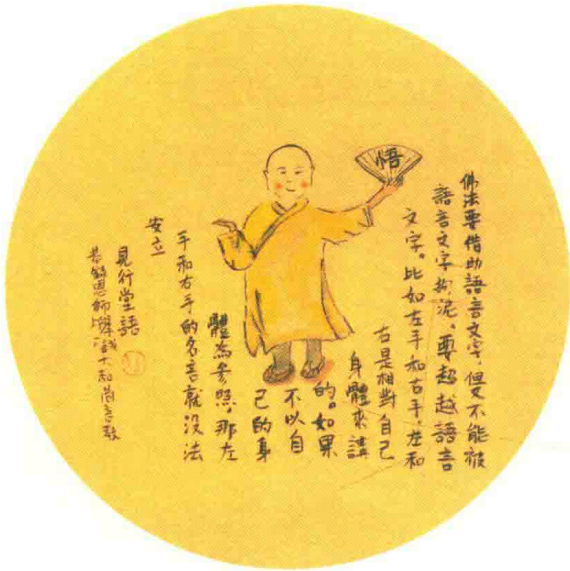 悟
佛法要借助語言文字,但又不能被
語言文字拘泥。要超越語言
文字。比如左手和右手,左和
右是相對自己
身體來講
的。如果
不以自
己的身
體為參照,那左
手和右手的名言就沒法
安立
見行堂語
恭錄恩師